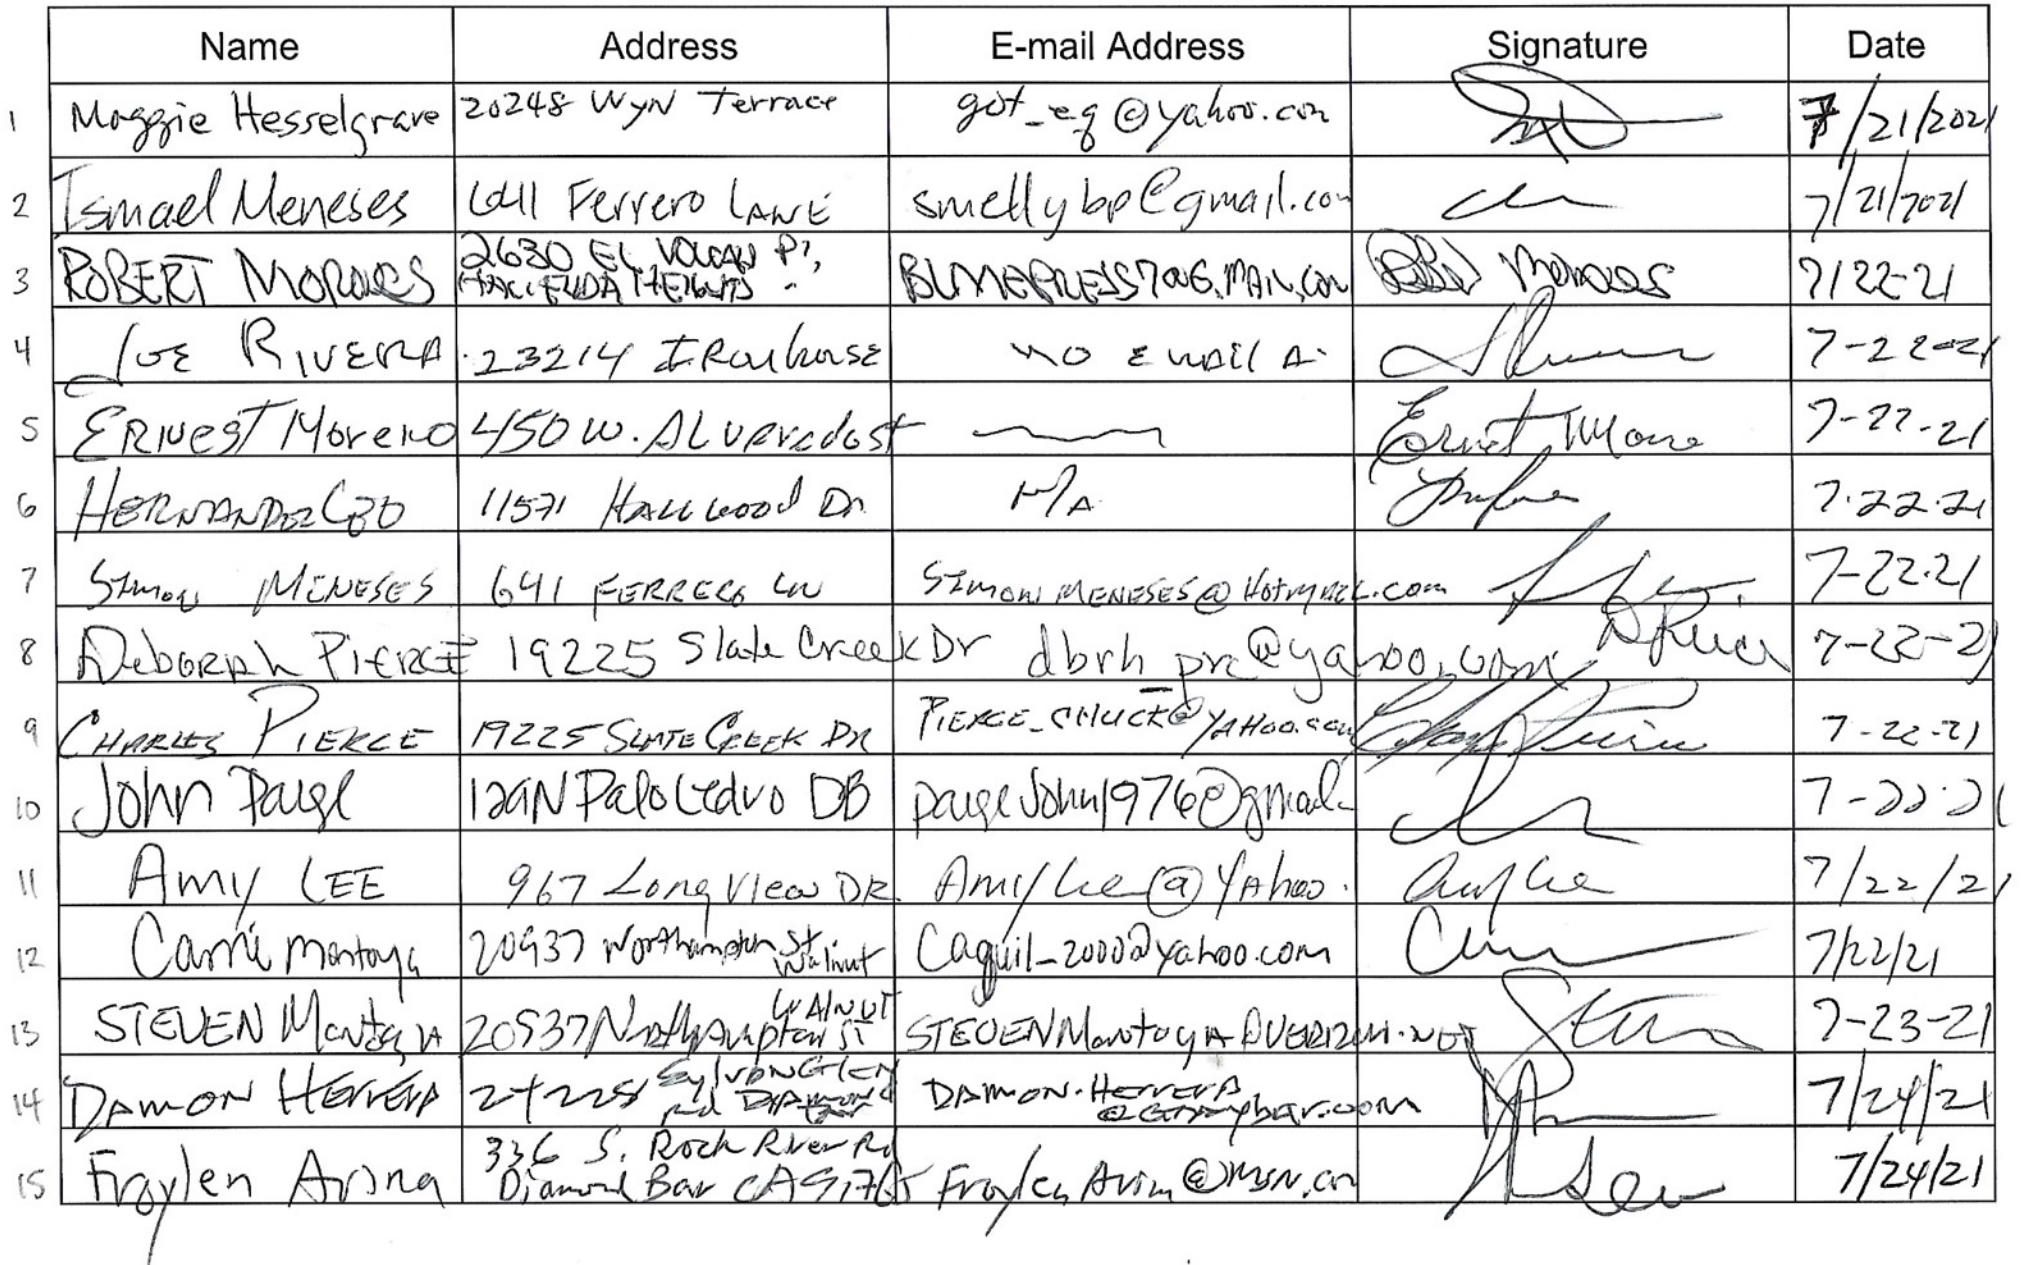 Name Address E-mail Address Signature Date
1 Maggie Hesselgrave 20248 Wyn Terrace got_eq@yahoo.com 7/21/2021
2 Ismael Meneses Ferrero LANE smellybp@gmail.com 7/21/2021
3 ROBERT MORALES 2630 EL VOLCAN Pl,
HACIENDA HEIGHTS 7/22-21
4 JOE RIVERA 23214 IRONhorse NO EMAIL A. 7-22-21
5 ERNEST Moreno 450 W. ALVERadost Ernest 7-22-21
6 HERNANDEZ 11571 HALLWOOD Dr N/A 7.22.21
7 SIMON MENESES 641 FERRERO LN SIMONMENESES@HOTMAIL.com 7-22.21
8 DeboRAh PIERCE 19225 Slate Creek Dr dbrh_prc@yahoo.com 7-22-21
9 CHARLES PIERCE 19225 SLATE CREEK DR PIERCE_CHUCK@YAHOO.com 7-22-21
10 John Paige Palo Cedro paigeJohn1976@gmail 7-22-21
11 AMY LEE 967 Longview DR. Amylee@YAhoo. Amy Lee 7/22/21
12 Carrie montoya 20937 Northampton St
Walnut Caguil_2000@yahoo.com 7/22/21
13 STEVEN Montoya 20937 Northampton ST
WALNUT 7-23-21
14 DAMON HERRERA Sylvan Glen
rd DIAMOND DAMON.HERRERA
@GRAYbar.com 7/24/21
15 Froylen 336 S. Rock River Rd
Diamond Bar CA 91765 7/24/21